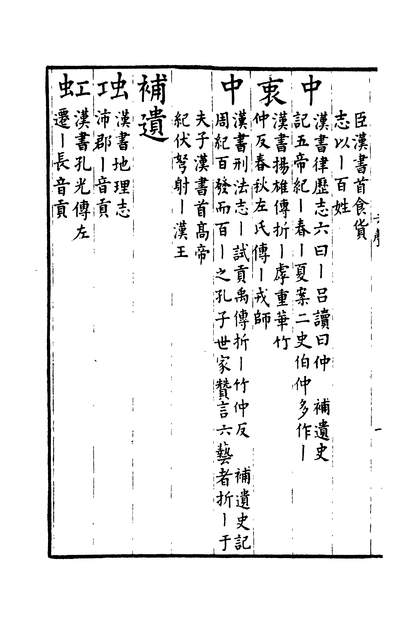 臣漢書首食貨
志以丨百姓
中
漢書律歷志六曰丨呂讀曰仲　補遺史
記五帝紀丨春丨夏案二史伯仲多作丨
衷
漢書揚雄傳折丨虖重華竹
仲反春秋左氏傳丨戎師
中
漢書刑法志丨試貢禹傳折丨竹仲反　補遺史記
周紀百發而百丨之孔子世家贊言六藝者折丨于
夫子漢書首髙帝
紀伏弩射丨漢王
補遺
䖝
漢書地理志
沛郡丨音貢
虹
漢書孔光傳左
遷丨長音貢